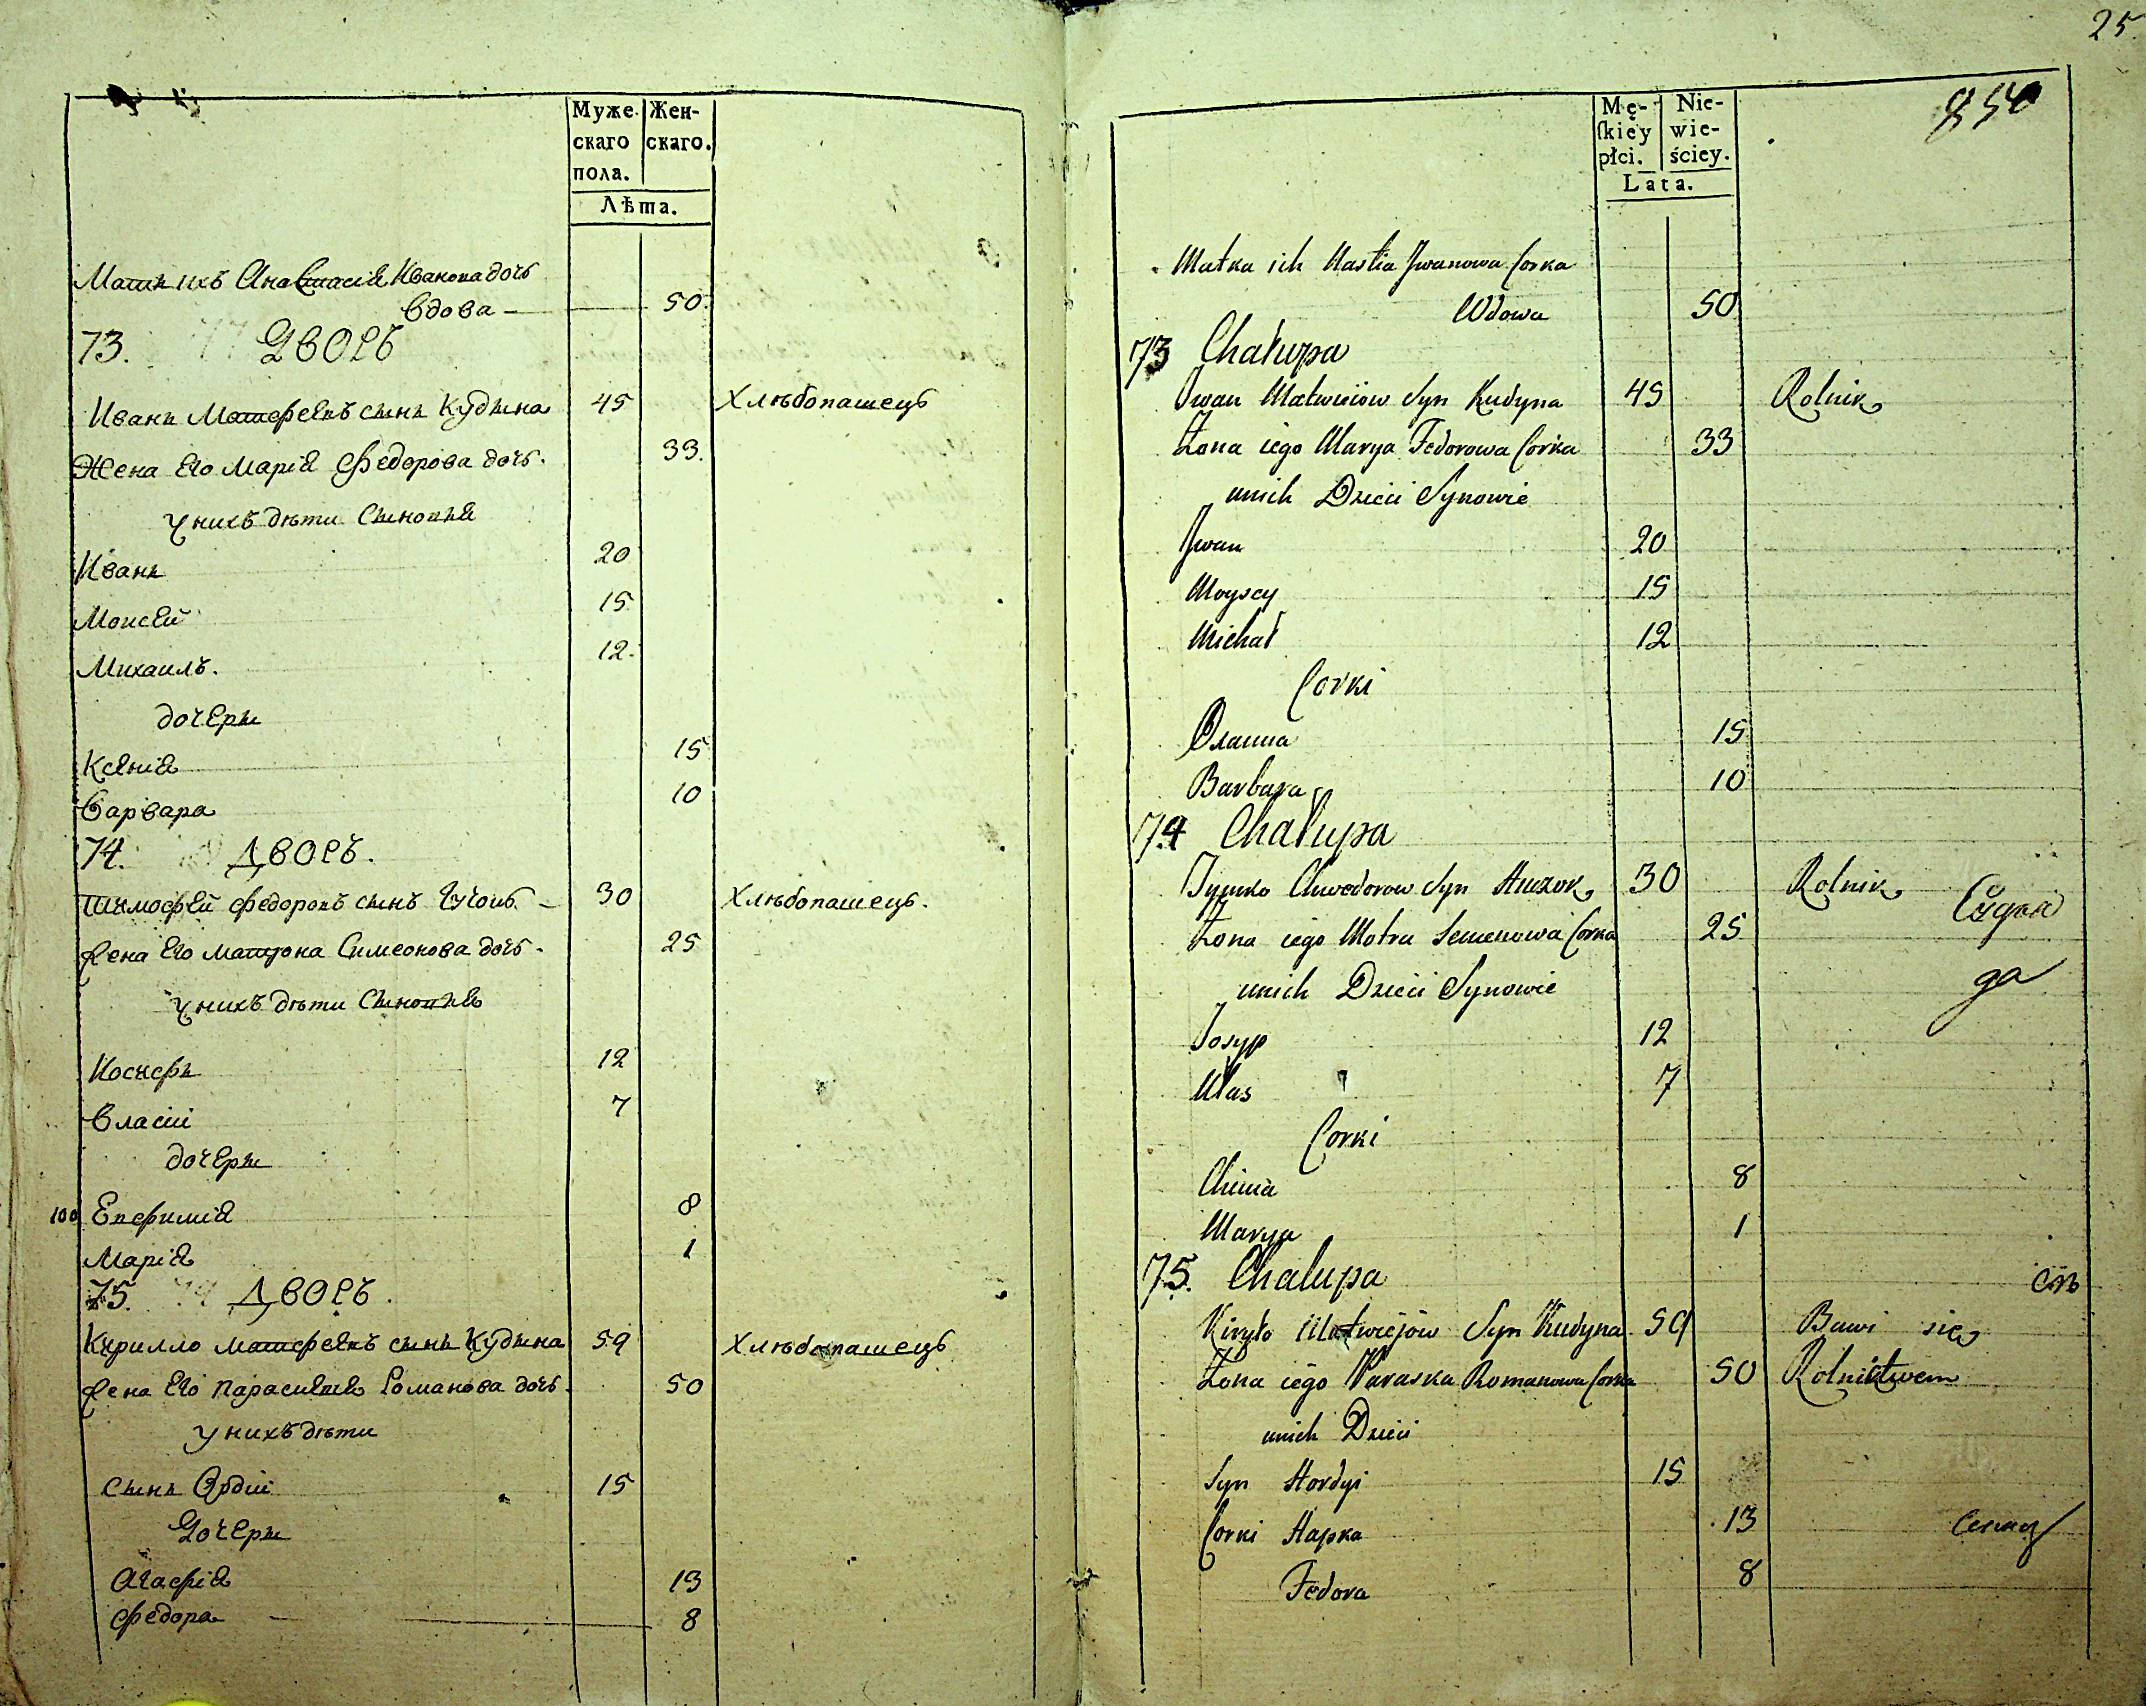 Муже-
скаго
пола.
Жен-
скаго.
Лѣта.
Мать ихъ Анастасія Иванова дочь
вдова 50.
73. Дворъ
Иванъ Матфеевъ сынъ Кудына 45 Хлѣбопашецъ
Жена его Марія Федорова дочь. 33.
у нихъ дѣти сыновья
Иванъ 20
Моисей 15
Михаилъ. 12.
дочеры
Ксенія 15
Варвара 10
74. Дворъ.
Тимофей Федоровъ сынъ 30 Хлѣбопашецъ.
Жена его Матрона Симеонова дочь. 25
у нихъ дѣти сыновья
Иосифъ 12
Власій 7
дочеры
100 Евфимія 8
Марія 1
75. Дворъ.
Кирилло Матфеевъ сынъ Кудына 59 Хлѣбопашецъ
Жена его Параскевія Романова дочь. 50
у нихъ дѣти
сынъ Ордій 15
Дочеры
Агафія 13
Федора 8
25.
854
Mę-
skiey
płci.
Nie-
wie-
ściey.
Lata.
Matka ich Nastia Jwanowa Corka
Wdowa 50
73 Chałupa
Jwan Matwieiow Syn Kudyna 45 Rolnik
Żona iego Marya Fedorowa Corka 33
unich Dzieci Synowie
Jwan 20
Moysey 15
Michał 12
Corki
Oxanna 15
Barbara 10
74 Chałupa
Tymko Chwedorow Syn 30 Rolnik
Żona iego Motra Semenowa Corka 25
unich Dzieci Synowie
Josyp 12
Ułas 7
Corki
Chima 8
Marya 1
75. Chalupa
Kiryło Matwiejów Syn Kudyna 59 Bawi się
Żona iego Paraska Romanowa Corka 50 Rolnictwem
unich Dzieci
Syn Hordyi 15
Corki Hapka 13
Fedora 8